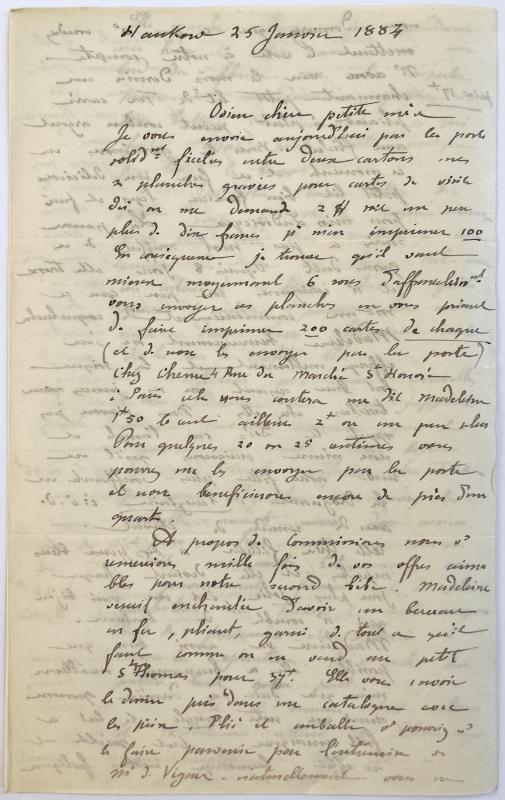 Hankow 25 Janvier 1884
bien chère petite mère
Je vous envoie aujourd'hui par la poste
solidmt ficelés entre deux cartons mes
2 planches gravées pour cartes de visite
Ici on me demande 2 # soit un peu
plus de dix francs pr m'en imprimer 100
En conséquence je trouve qu'il vaut
mieux moyennant 6 sous d'affranchissmt
vous envoyer ces planches en vous priant
de faire imprimer 200 cartes de chaque
(et de nous les envoyer par la poste)
Chez 4 Rue du Marché St Honoré
à Paris cela vous coutera me dit Madeleine
1f 50 le cent ailleurs 2f ou un peu plus
Pour quelques 20 ou 25 centimes vous
pouvez me les envoyer par la poste
et nous beneficierons encore de près d'un
quart.
A propos de commissions nous vs
remercions mille fois de vos offres aima
bles pour notre second bébé. Madeleine
serait enchantée d'avoir un berceau
en fer, pliant, garni de tout ce qu'il
faut comme on en vend au petit
St Thomas pour 39f. Elle vous envoie
le dessin pris dans un catalogue avec
les prix. Plié et emballé vs pourriez vs
le faire parvenir par l'entremise de
Mr de Vigour. naturellement vous ne